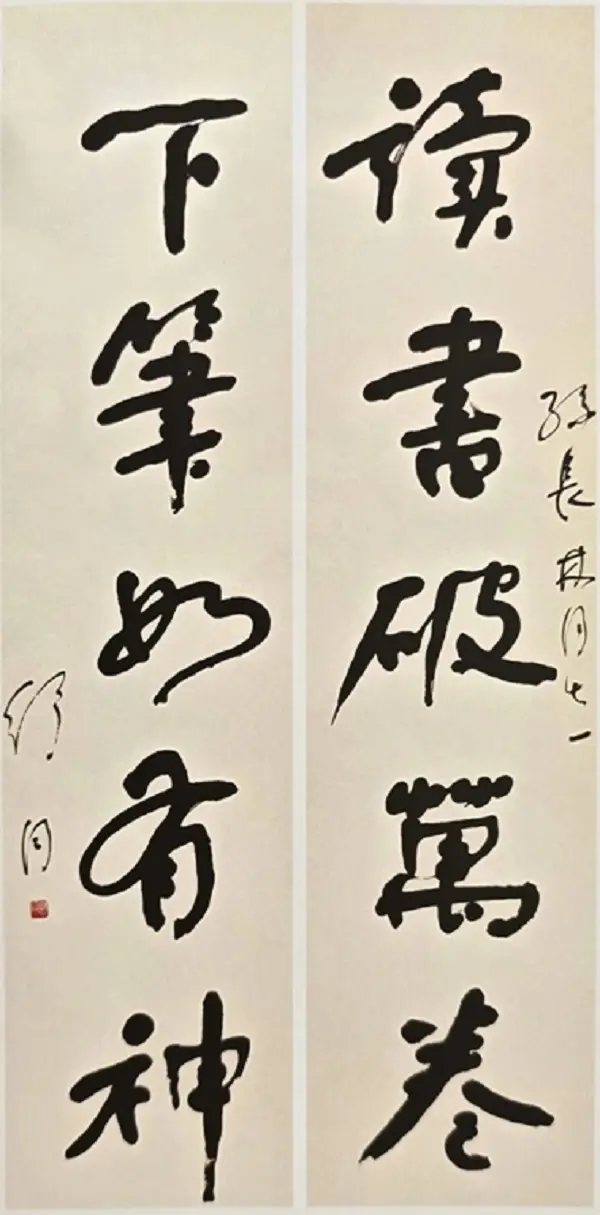 孫長林同志
讀書破萬卷
下筆如有神
舒同